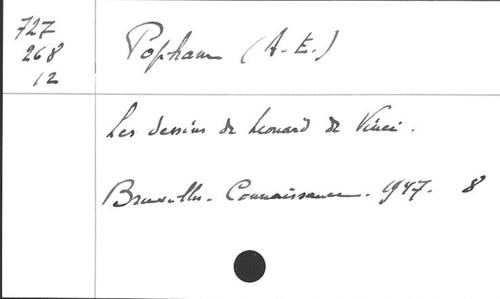 727
268
12
Popham (A.-E.)
Les dessins de Léonard de Vinci.
Bruxelles. Connaissance. 1947. 8